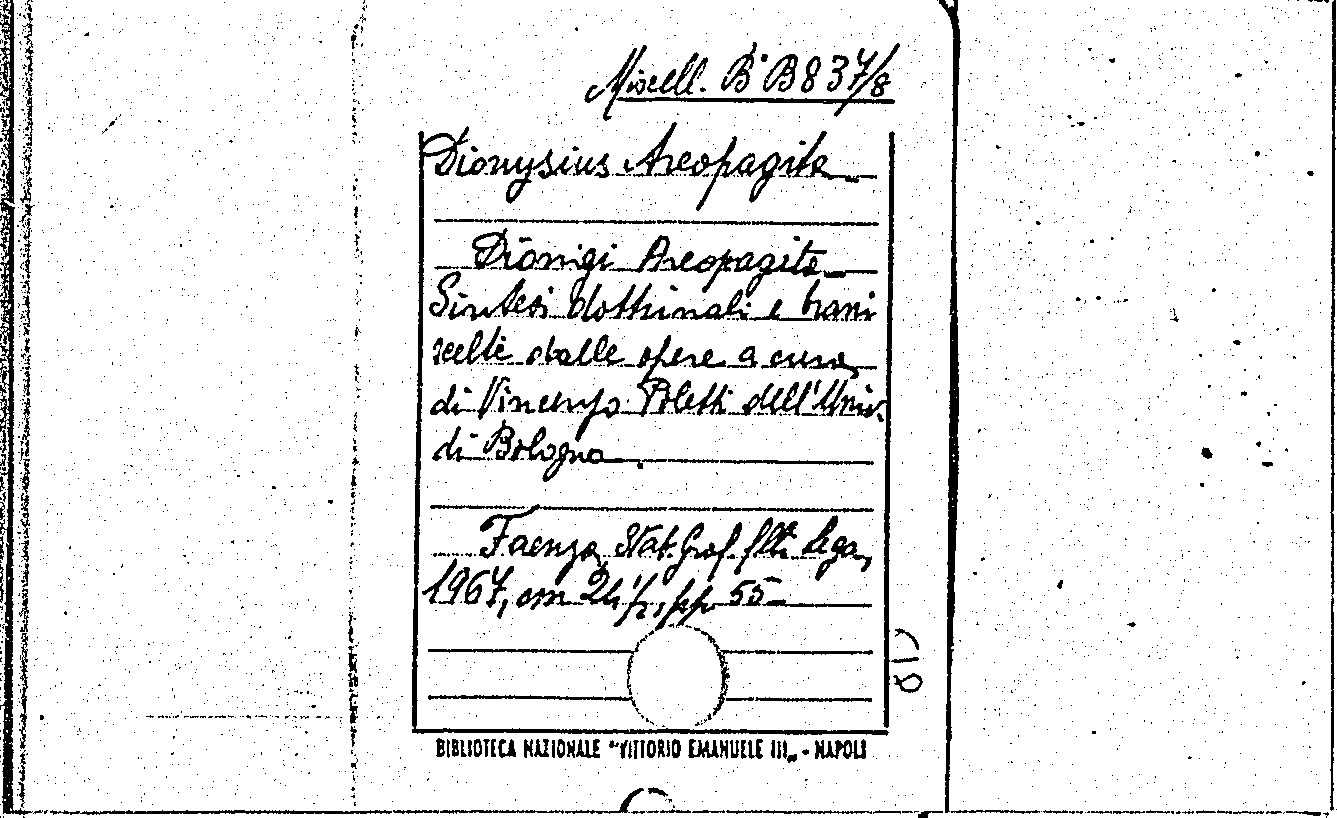 Miscell. B. B 837/8
Dionysius Areopagita
Dionigi Areopagita
Sintesi dottrinali e brani
scelti dalle opere a cura
di Vincenzo Poletti dell'Univ.
di Bologna.
Faenza, Stab. Graf. flli Lega,
1967, cm 24 1/2, pp. 55
BIBLIOTECA NAZIONALE "VITTORIO EMANUELE III„ - NAPOLI